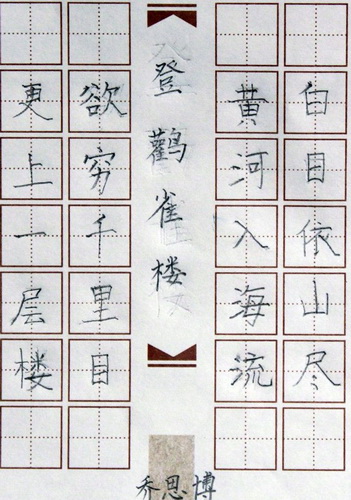 白日依山尽
黄河入海流
登鹳雀楼
欲穷千里目
更上一层楼
乔恩博